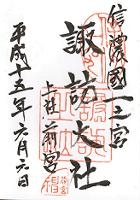 信濃國一之宮
諏訪大社
上社前宮
平成十五年六月六日